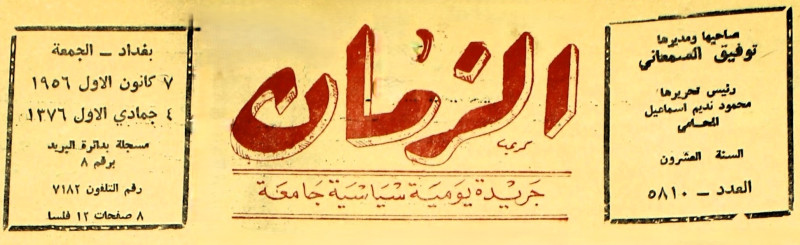 صاحبها ومديرها
توفيق السمعاني
رئيس تحريرها
محمود نديم اسماعيل
المحامي
السنة العشرون
العدد - ٥٨١٠
الزمان
كريم
جريدة يومية سياسية جامعة
بغداد - الجمعة
٧ كانون الاول ١٩٥٦
٤ جمادي الاول ١٣٧٦
مسجلة بدائرة البريد
برقم ٨
رقم التلفون ٧١٨٢
٨ صفحات ١٢ فلسا